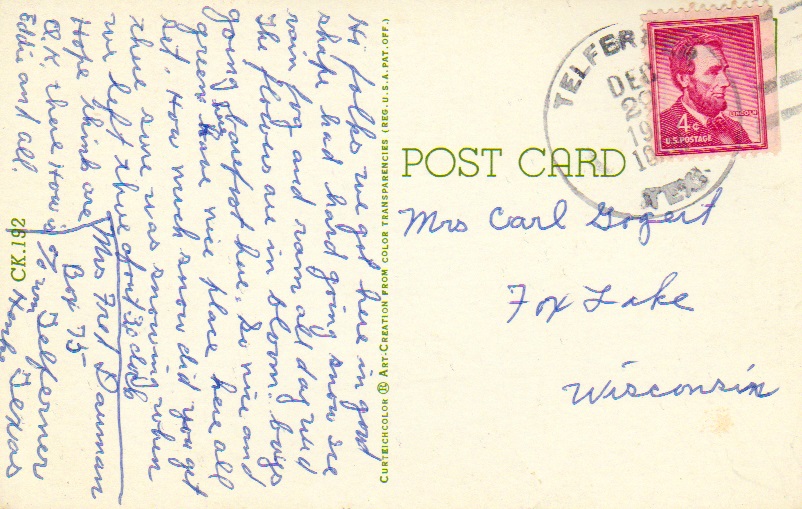 Hi folks we got here in good
shape had hard going snow ice
rain fog and ram all day wed
The flowers are in bloom. boys
going barefoot here. So nice and
green here nice place here all
bet. How much snow did you get
there sure was snowing when
we left there about 3 oclock
Hope things are
O.K there How is
Eddie and all.
Mrs Fred Dauman
Box 75
% Telferner
Texas
CK.192
CURTEICHCOLOR ® ART-CREATION FROM COLOR TRANSPARENCIES (REG. U. S. A. PAT. OFF.)
POST CARD
TELFER
DEC
19
TEX.
LINCOLN
4¢
U.S. POSTAGE
Mrs Carl Gogert
Fox Lake
Wisconsin